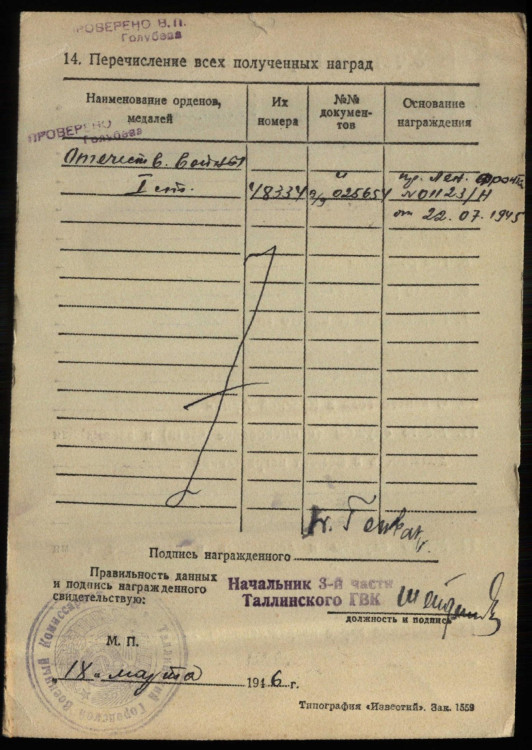 ПРОВЕРЕНО В.П.
Голубева
14. Перечисление всех полученных наград
Наименование орденов, медалей
Их номера
№№ документов
Основание награждения
ПРОВЕРЕНО
Голубева
Отечеств. войны
I ст.
48334
025654
пр. Лен. фронта
№ 01123/Н
от 22.07.1945
Подпись награжденного
Правильность данных
и подпись награжденного
свидетельствую:
Начальник 3-й части
Таллинского ГВК
должность и подпись
М. П.
марта 1946 г.
Типография «Известий». Зак. 1559